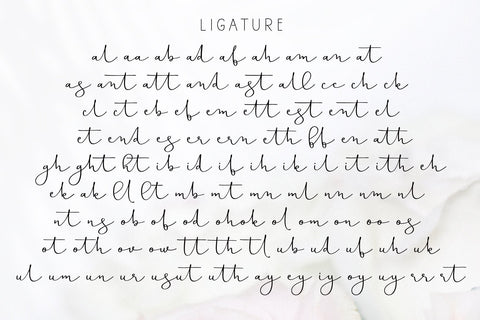 LIGATURE
al aa ab ad af ah am an at
as ant att and ast all cc ch ck
cl ct eb ef em ett est ent el
et end es er ern eth ff en ath
gh ght ht ib id if ih ik il it ith eh
ek ak ll lt mb mt mn ml nn nm nl
nt ns ob of od ohok ol om on oo os
ot oth ov ow tt th tl ub ud uf uh uk
ul um un ur usut uth ay ey iy oy uy rr rt